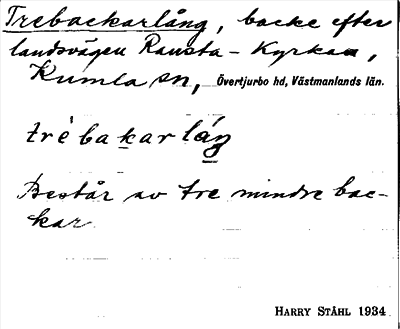 Trebackarlång, backe efter
landsvägen Ransta - Kyrkan,
Kumla sn, Övertjurbo hd, Västmanlands län.
trèbakarláŋ
Består av tre mindre bac-
kar
HARRY STÅHL 1934